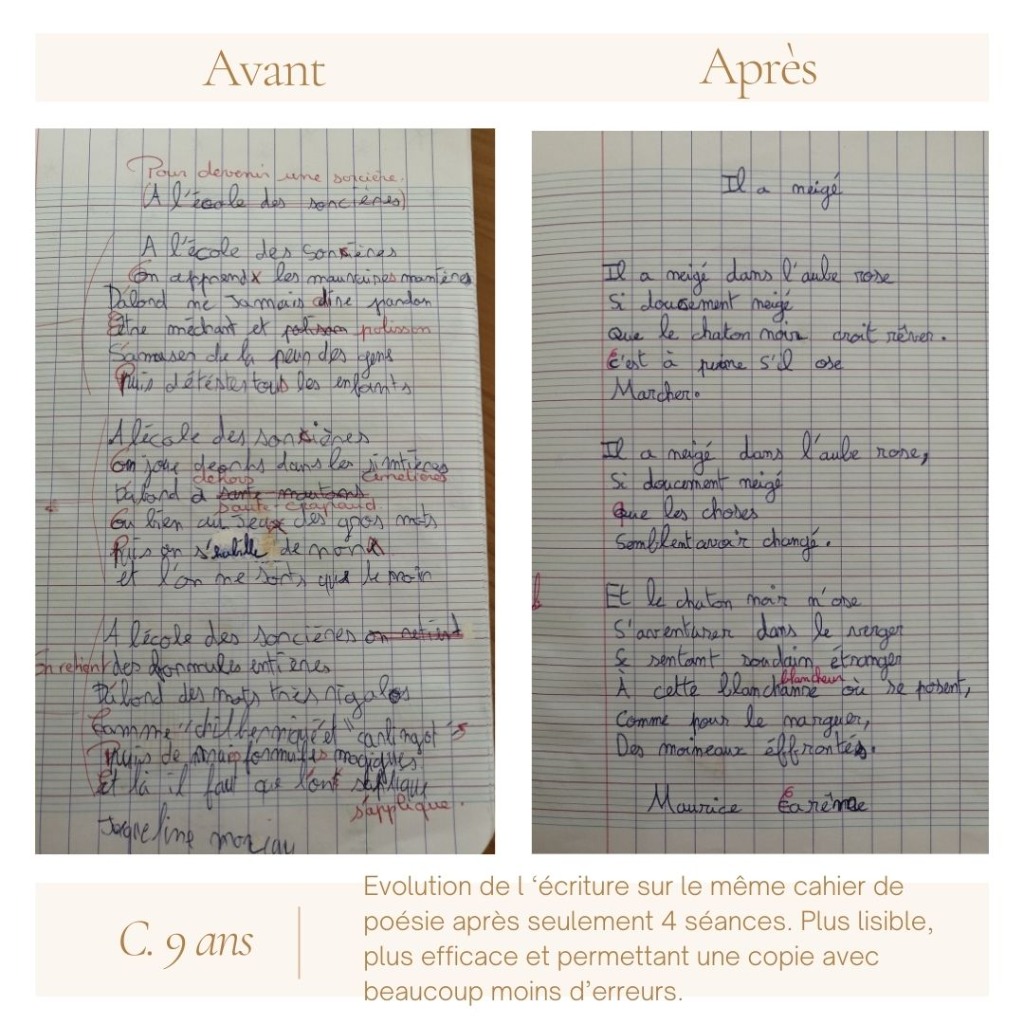 Avant
Après
Pour devenir une sorcière.
(A l'école des sorcières)
A l'école des sorsières
On apprendx les mauvaines manières
D'abord ne Jamais dire pardon
Etre méchant et polisson polisson
S'amuser de la peur des gens
Puis détéster tous les enfants
A lécole des sorsières
On joue deorhs dans les simtières
dehors cimetières
D'abord à saute moutons
saute-crapaud
Ou bien au Jeux des gros mots
Puis on s'habille de noir
et l'on ne sorts que le
A lécole des sorcières on retiend
On retient des formules entières
D'abord des mots très rigalos
Comme "chilbernique et "carlingot"s
Puis de vraie formules magiques
Et là il faut que l'ont saplique
s'applique.
Jaqueline moreau
Il a neigé
Il a neigé dans l'aube rose
Si doucement neigé
Que le chaton noir croit rêver.
C'est à peine s'il ose
Marcher.
Il a neigé dans l'aube rose,
Si doucement neigé
Que les choses
Semblent avoir changé.
Et le chaton noir n'ose
S'aventurer dans le verger
Se sentant soudain étranger
blancheur
À cette où se posent,
Comme pour le narguer,
Des moineaux éffrontés.
Maurice Carême
C. 9 ans
Evolution de l ‘écriture sur le même cahier de
poésie après seulement 4 séances. Plus lisible,
plus efficace et permettant une copie avec
beaucoup moins d’erreurs.